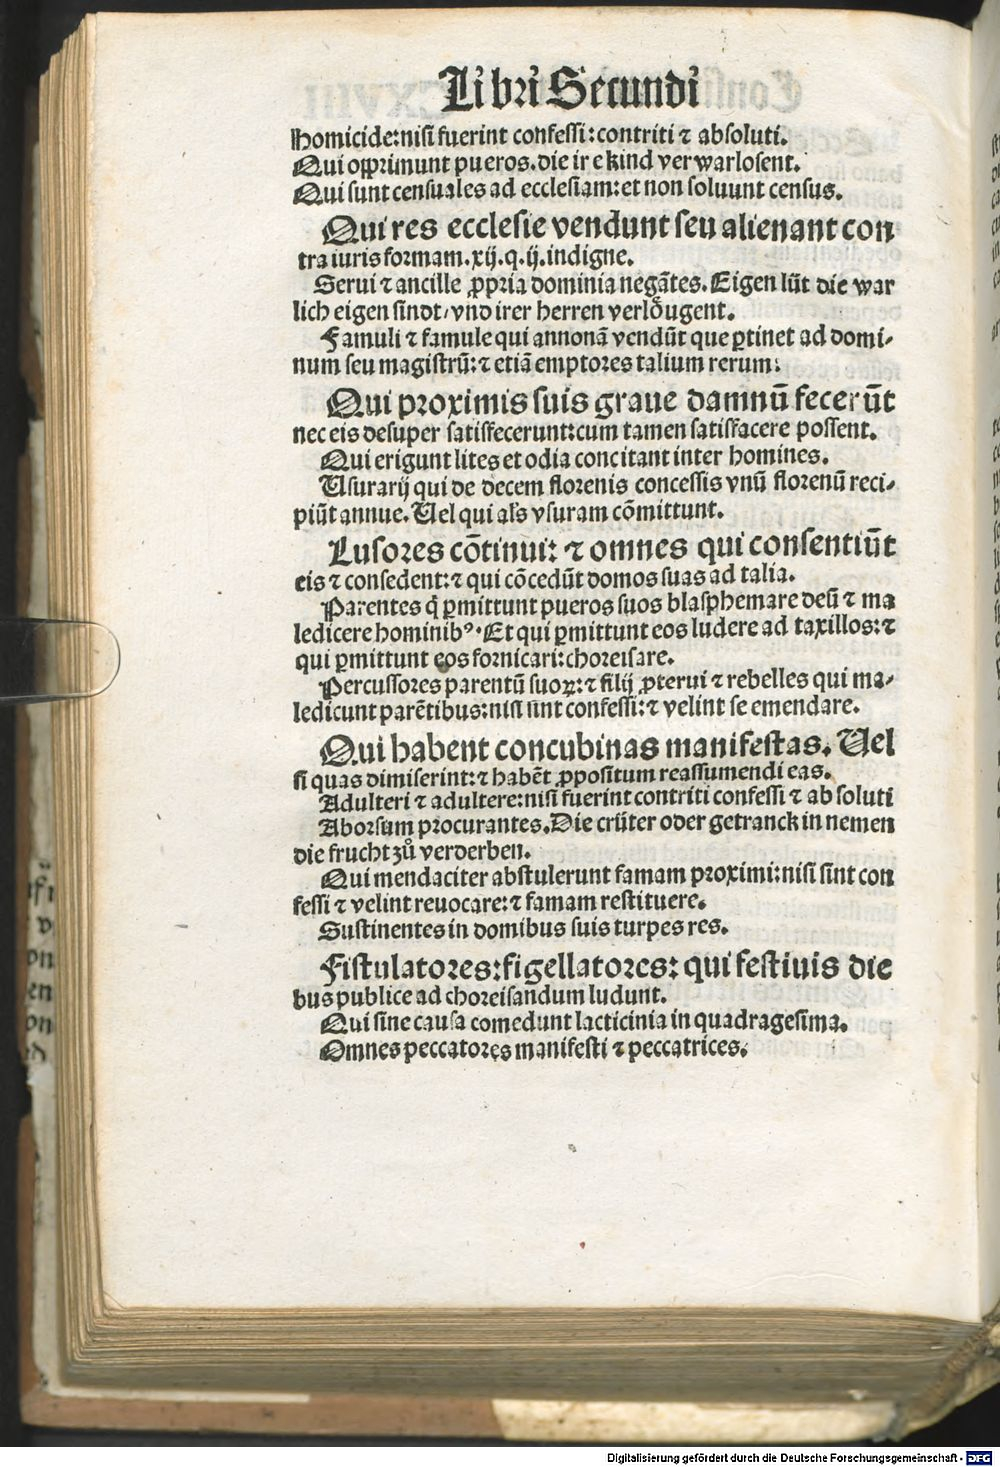 Libri Secundi
Homicide:nisi fuerint confessi:contriti ⁊ absoluti.
Qui opprimunt pueros.die ire kind verwarlosent.
Qui sunt censuales ad ecclesiam:et non soluunt census.
Qui res ecclesie vendunt seu alienant con
tra iuris formam.xij.q.ij.indigne.
Serui ⁊ ancille ꝓpria dominia negātes.Eigen lüt die war
lich eigen sindt/vnd irer herren verlöugent.
Famuli ⁊ famule qui annonā vendūt que ꝑtinet ad domi-
num seu magistrū:⁊ etiā emptores talium rerum:
Qui proximis suis graue damnū fecerūt
nec eis desuper satisfecerunt:cum tamen satisfacere possent.
Qui erigunt lites et odia concitant inter homines.
Usurarij qui de decem florenis concessis vnū florenū reci-
piūt annue.Uel qui al's vsuram cōmittunt.
Lusores cōtinui: ⁊ omnes qui consentiūt
eis ⁊ consedent:⁊ qui cōcedūt domos suas ad talia.
Parentes q̇ ꝑmittunt pueros suos blasphemare deū ⁊ ma
ledicere hominibꝰ.Et qui ꝑmittunt eos ludere ad taxillos:⁊
qui ꝑmittunt eos fornicari:choreisare.
Percussores parentū suoꝝ:⁊ filij ꝓterui ⁊ rebelles qui ma-
ledicunt parētibus:nisi sint confessi:⁊ velint se emendare.
Qui habent concubinas manifestas. Uel
si quas dimiserint:⁊ habēt ꝓpositum reassumendi eas.
Adulteri ⁊ adultere:nisi fuerint contriti confessi ⁊ absoluti
Aborsum procurantes.Die crüter oder getranck in nemen
die frucht zů verderben.
Qui mendaciter abstulerunt famam proximi:nisi sint con
fessi ⁊ velint reuocare:⁊ famam restituere.
Sustinentes in domibus suis turpes res.
Fistulatores:figellatores: qui festiuis die
bus publice ad choreisandum ludunt.
Qui sine causa comedunt lacticinia in quadragesima.
Omnes peccatores manifesti ⁊ peccatrices.
Digitalisierung gefördert durch die Deutsche Forschungsgemeinschaft - DFG